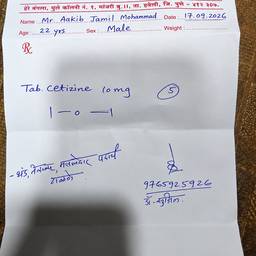 डी बंगला, घुले कॉलनी नं. १, मांजरी बु.।।, ता. हवेली, जि. पुणे - ४१२ ३०७.
Name : Mr. Aakib Jamil Mohammad Date : 17.09.2026
Age : 22 yrs Sex : Male Weight :
Rx
Tab. Cetizine 10 mg 5
1 — 0 — 1
- अंडे, तेलकट, मसालेदार पदार्थ
टाळणे
9765925926
डॉ. सुमित.